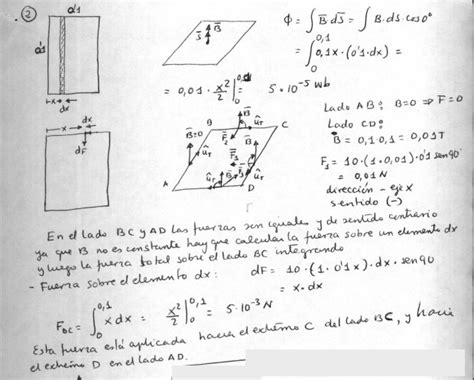 ② 0'1
0'1
x dx
x dx
dF
S B
Φ = ∫ B·dS = ∫ B·ds·cos 0°
= ∫₀^0,1 0,1x·(0'1·dx) =
= 0,01· x²/2 |₀^0,1 = 5·10⁻⁵ Wb
Lado AB: B=0 ⇒ F=0
Lado CD:
B = 0,1·0,1 = 0,01T
F₁ = 10·(1·0,01)·0'1 sen90°
= 0,01 N
dirección - eje X
sentido (-)
B=0 B F₂ B C
A u_T F₁ B D
En el lado BC y AD las fuerzas son iguales y de sentido contrario
ya que B no es constante hay que calcular la fuerza sobre un elemento dx
y luego la fuerza total sobre el lado BC integrando
- Fuerza sobre el elemento dx: dF = 10·(1·0'1x)·dx·sen90
= x·dx
F_BC = ∫₀^0,1 x dx = x²/2 |₀^0,1 = 5·10⁻³ N
Esta fuerza está aplicada hacia el extremo C del lado BC, y hacia
el extremo D en el lado AD.